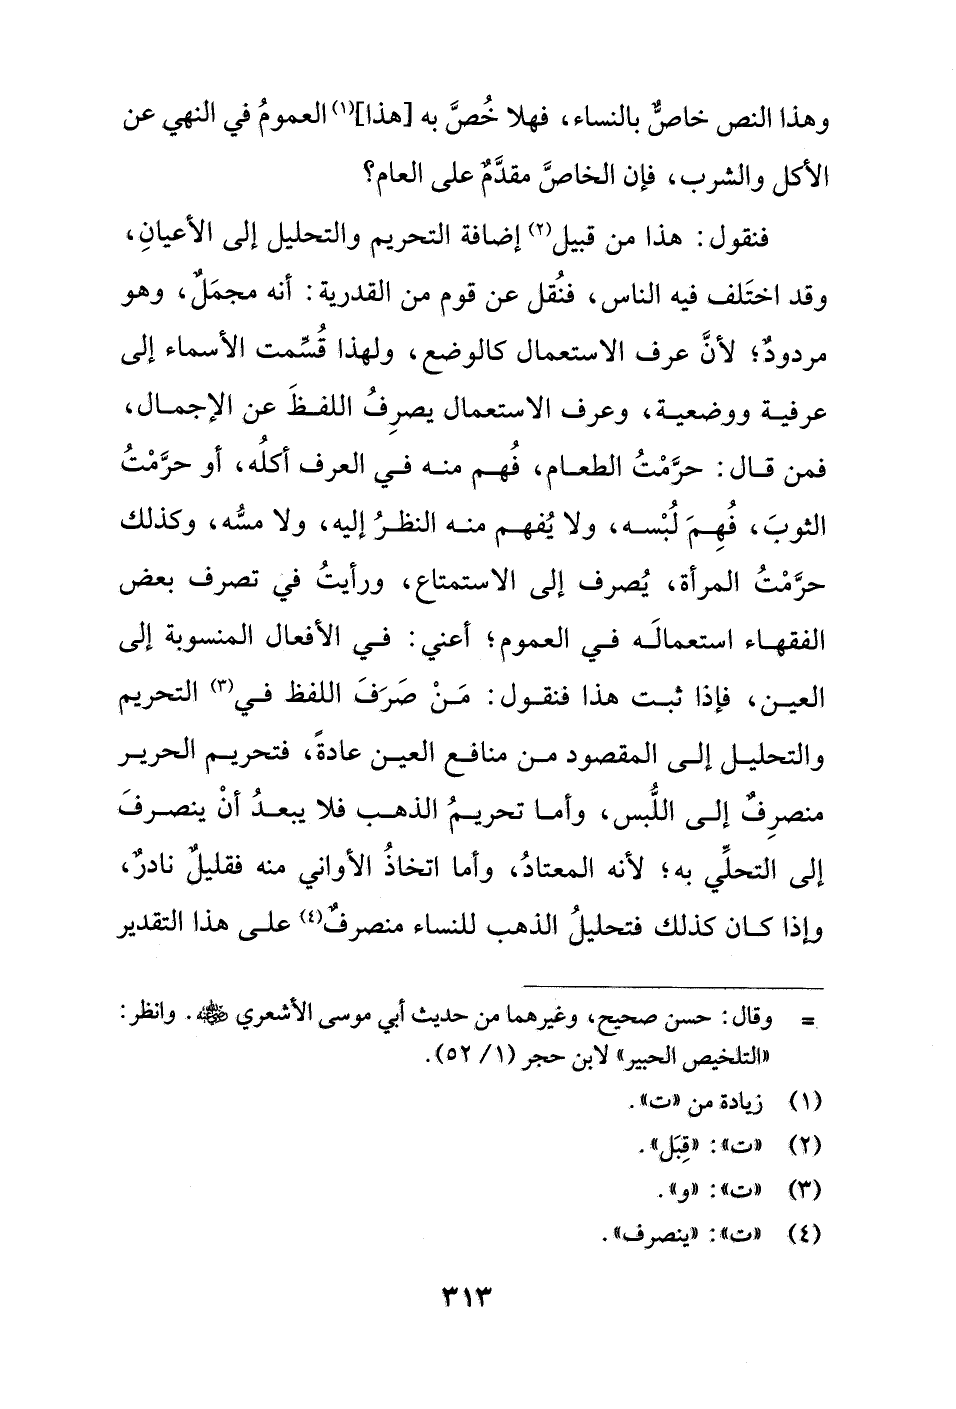 وهذا النص خاصٌّ بالنساء، فهلا خُصَّ به [هذا](١) العمومُ في النهي عن
الأكل والشرب، فإن الخاصَّ مقدَّمٌ على العام؟
فنقول: هذا من قبيل(٢) إضافة التحريم والتحليل إلى الأعيانِ،
وقد اختَلف فيه الناس، فنُقل عن قوم من القدرية: أنه مجمَلٌ، وهو
مردودٌ؛ لأنَّ عرف الاستعمال كالوضع، ولهذا قُسِّمت الأسماء إلى
عرفية ووضعية، وعرف الاستعمال يصرِفُ اللفظَ عن الإجمال،
فمن قال: حرَّمْتُ الطعام، فُهم منه في العرف أكلُه، أو حرَّمْتُ
الثوبَ، فُهِمَ لُبْسه، ولا يُفهم منه النظرُ إليه، ولا مسُّه، وكذلك
حرَّمْتُ المرأة، يُصرف إلى الاستمتاع، ورأيتُ في تصرف بعض
الفقهاء استعمالَه في العموم؛ أعني: في الأفعال المنسوبة إلى
العين، فإذا ثبت هذا فنقول: مَنْ صَرَفَ اللفظ في(٣) التحريم
والتحليل إلى المقصود من منافع العين عادةً، فتحريم الحرير
منصرِفٌ إلى اللُّبس، وأما تحريمُ الذهب فلا يبعدُ أنْ ينصرفَ
إلى التحلِّي به؛ لأنه المعتادُ، وأما اتخاذُ الأواني منه فقليلٌ نادرٌ،
وإذا كان كذلك فتحليلُ الذهب للنساء منصرفٌ(٤) على هذا التقدير
= وقال: حسن صحيح، وغيرهما من حديث أبي موسى الأشعري رضي الله عنه. وانظر:
«التلخيص الحبير» لابن حجر (١/ ٥٢).
(١) زيادة من «ت».
(٢) «ت»: «قِبَل».
(٣) «ت»: «و».
(٤) «ت»: «ينصرف».
٣١٣